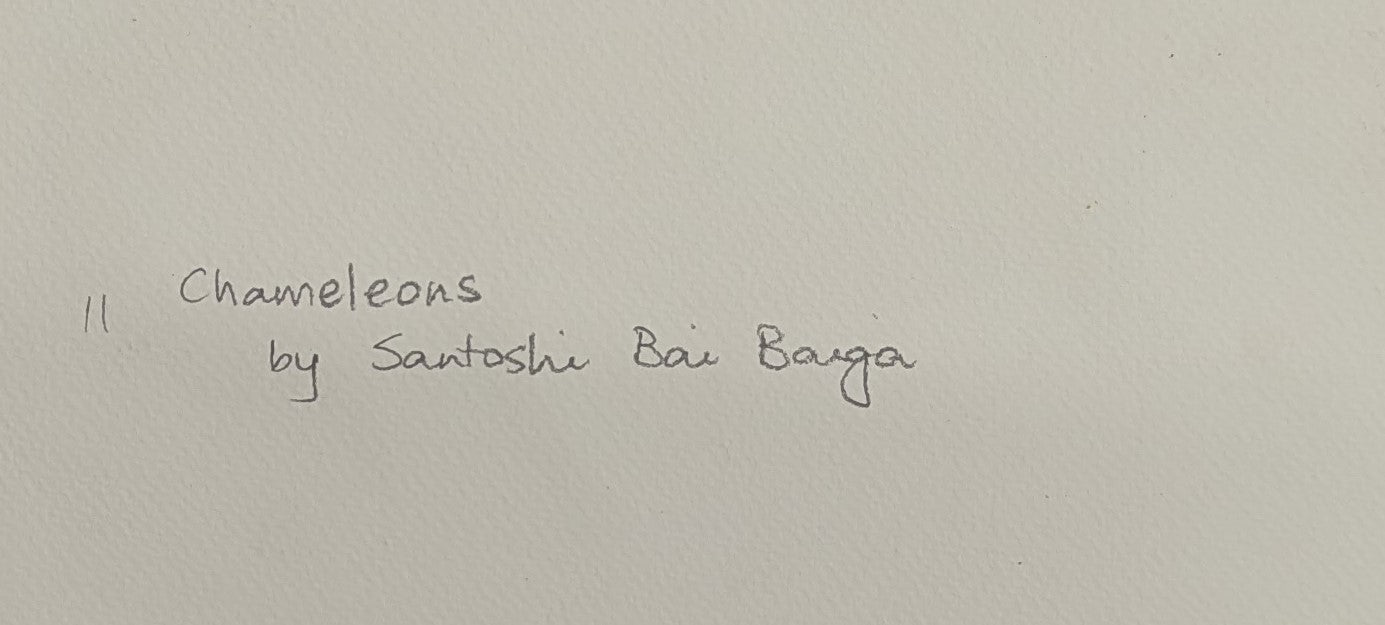 11 Chameleons
by Santoshi Bai Baiga